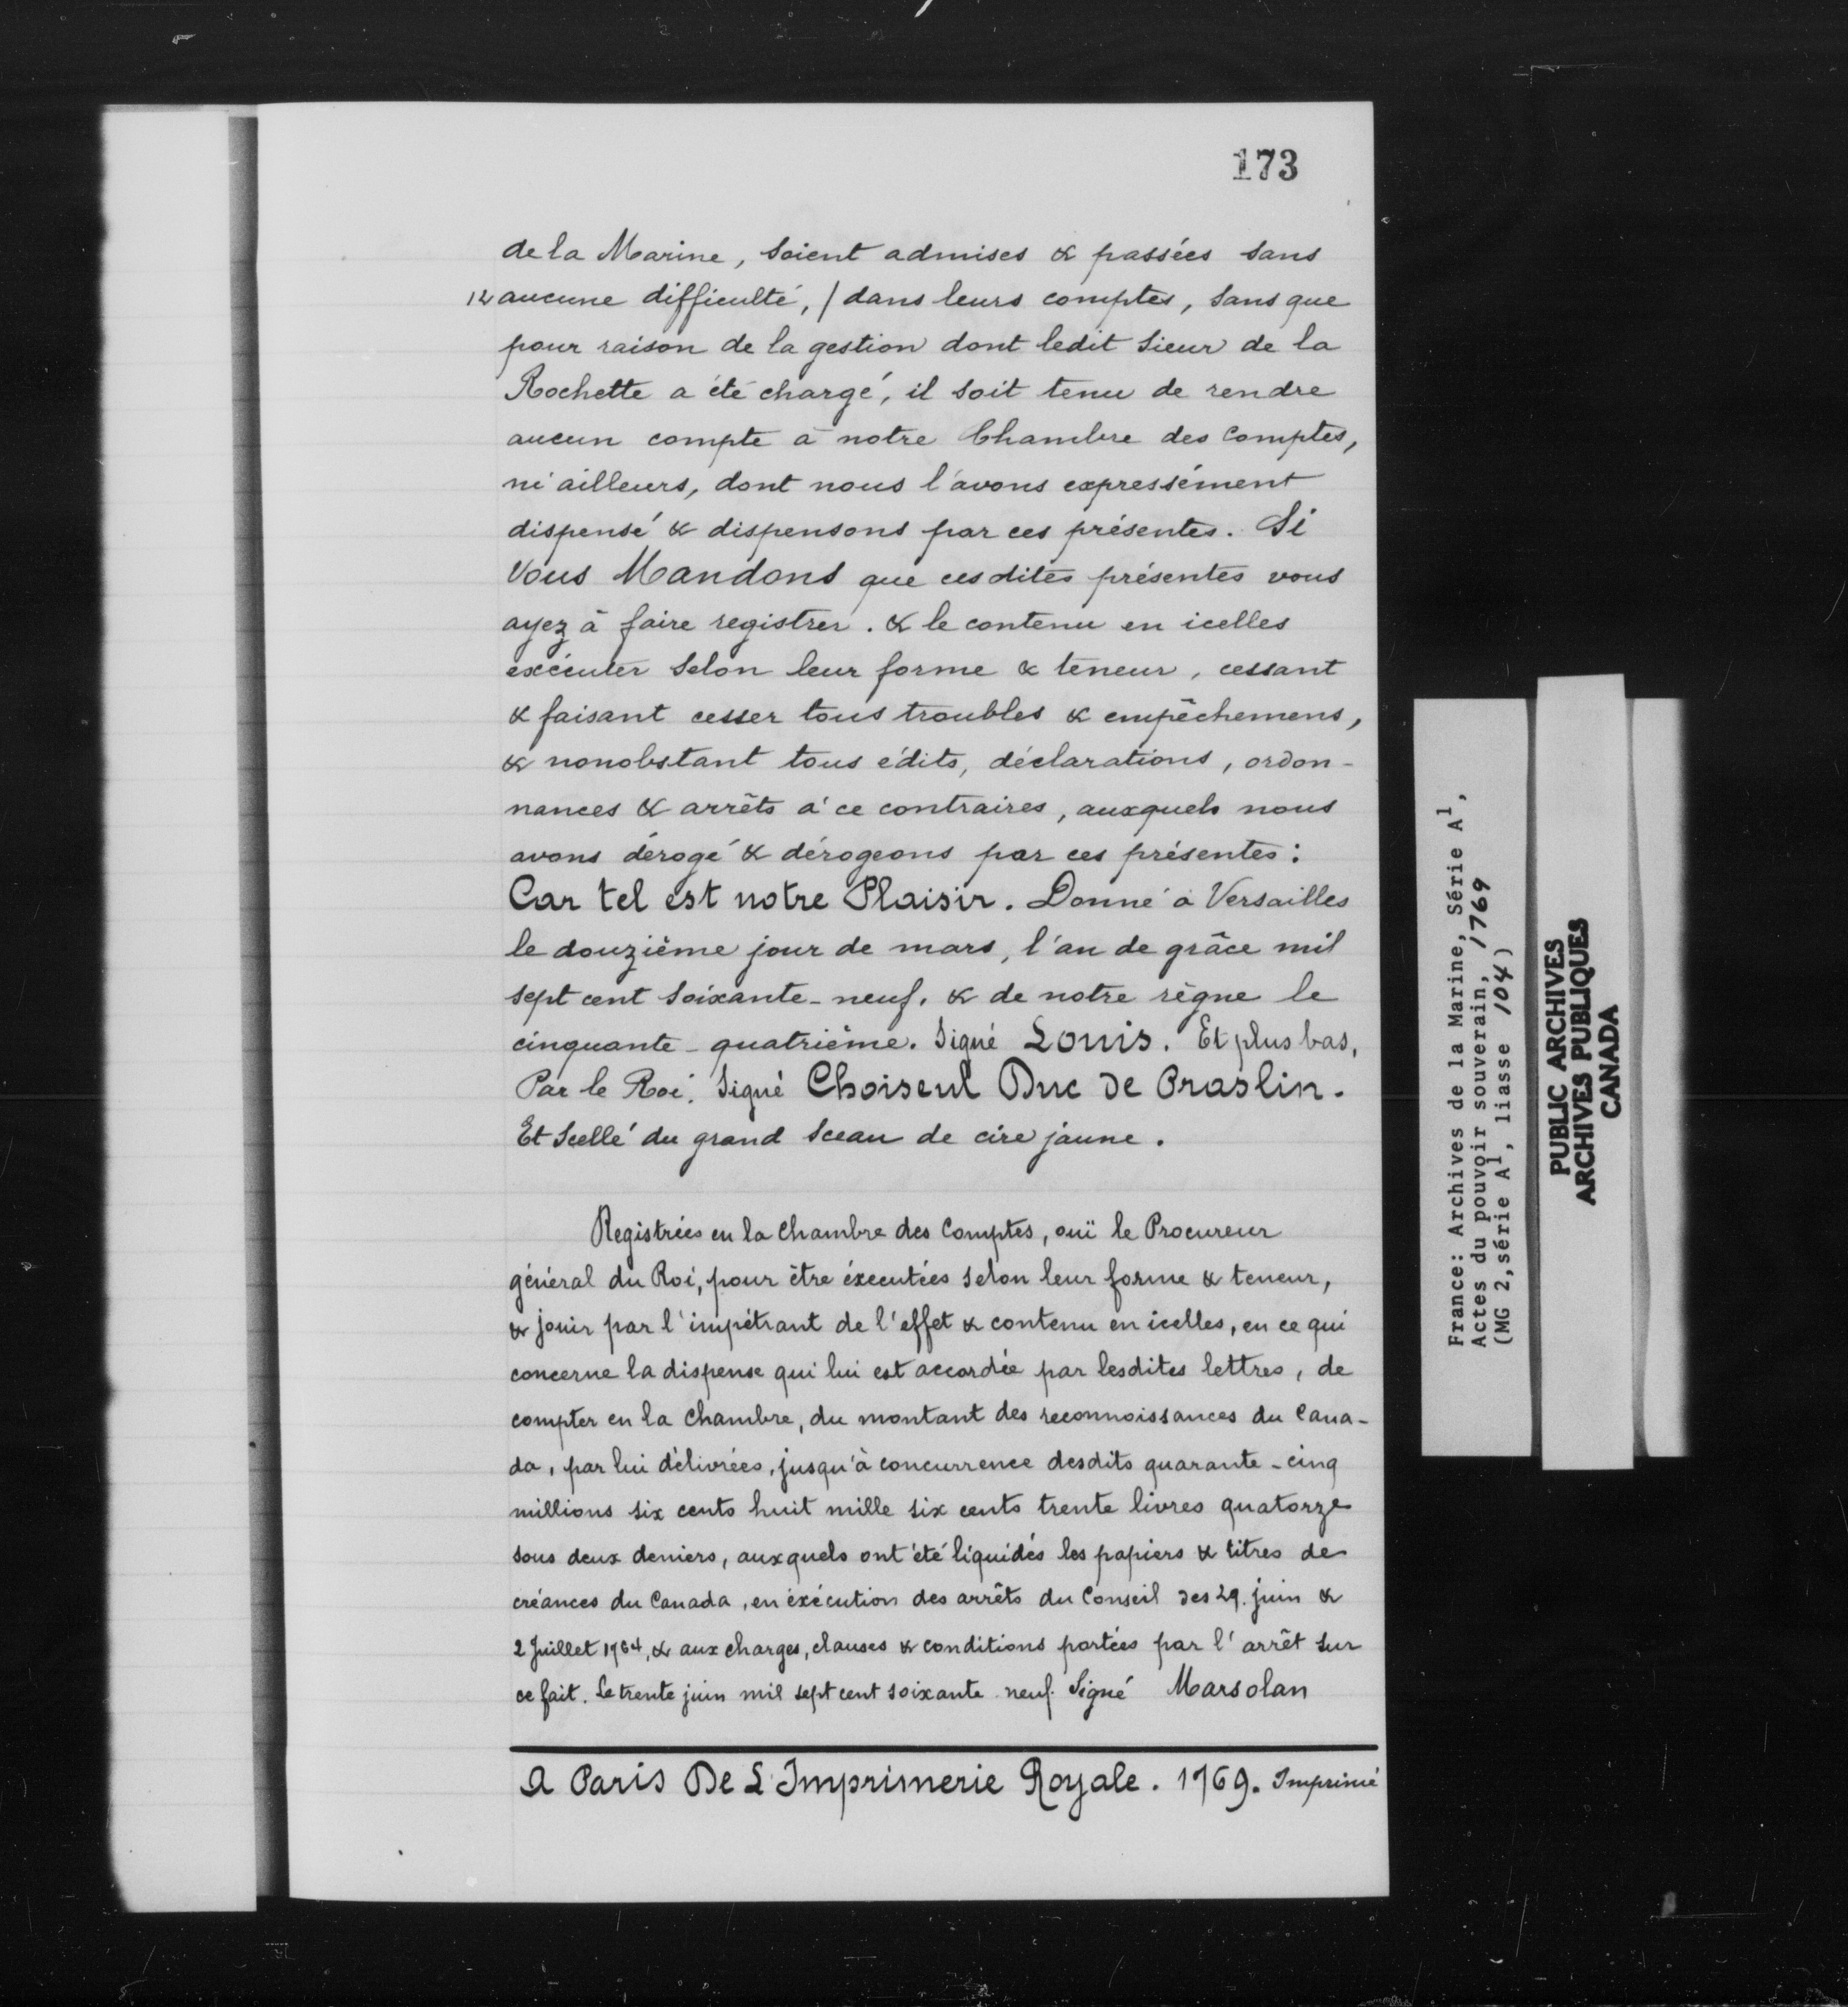 173
de la Marine, soient admises & passées sans
12 aucune difficulté, / dans leurs comptes, sans que
pour raison de la gestion dont ledit Sieur de la
Rochette a été chargé, il soit tenu de rendre
aucun compte à notre Chambre des Comptes,
ni ailleurs, dont nous l'avons expressément
dispensé & dispensons par ces présentes. Si
Vous Mandons que cesdites présentes vous
ayez à faire registrer. & le contenu en icelles
exécuter selon leur forme & teneur, cessant
& faisant cesser tous troubles & empêchemens,
& nonobstant tous édits, déclarations, ordon-
nances & arrêts à ce contraires, auxquels nous
avons dérogé & dérogeons par ces présentes:
Car tel est notre Plaisir. Donné à Versailles
le douzième jour de mars, l'an de grâce mil
sept cent soixante-neuf, & de notre règne le
cinquante-quatrième. Signé Louis. Et plus bas,
Par le Roi. Signé Choiseul Duc De Praslin.
Et Scellé du grand sceau de cire jaune.
Registrées en la Chambre des Comptes, ouï le Procureur
général du Roi, pour être éxecutées selon leur forme & teneur,
& jouir par l'impétrant de l'effet & contenu en icelles, en ce qui
concerne la dispense qui lui est accordée par lesdites lettres, de
compter en la Chambre, du montant des reconnoissances du Cana-
da, par lui délivrées, jusqu'à concurrence desdits quarante-cinq
millions six cents huit mille six cents trente livres quatorze
sous deux deniers, auxquels ont été liquidés les papiers & titres de
créances du Canada, en éxécution des arrêts du Conseil des 29. juin &
2 Juillet 1764, & aux charges, clauses & conditions portées par l'arrêt sur
ce fait. Le trente juin mil sept cent soixante neuf. Signé Marsolan
A Paris De L'Imprimerie Royale. 1769. Imprimé
France: Archives de la Marine, Série A1,
Actes du pouvoir souverain, 1769
(MG 2, série A1, liasse 104)
PUBLIC ARCHIVES
ARCHIVES PUBLIQUES
CANADA